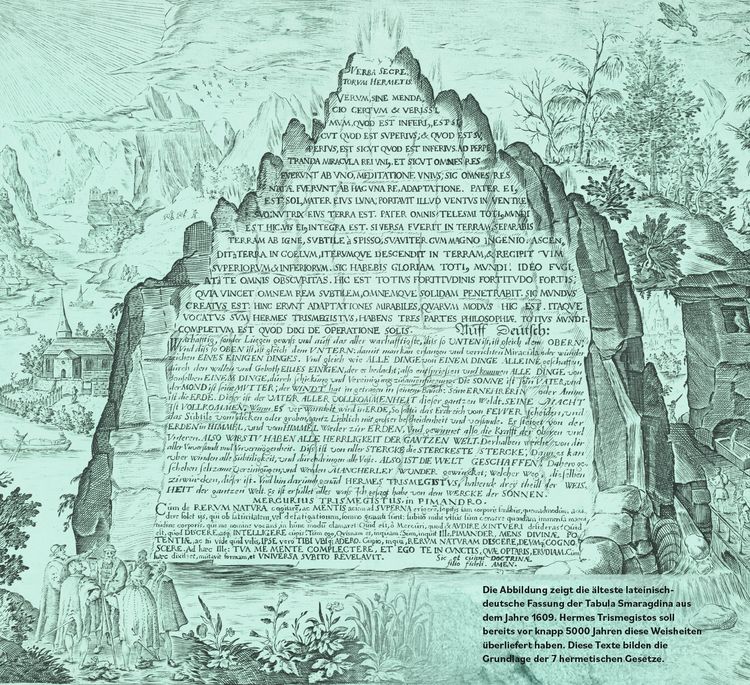 VERBA SECRE,
TORVM HERMETIS.
VERVM, SINE MENDA,
CIO CERTVM & VERISSI,
MVM, QVOD EST INFERI,, EST SI,
CVT QVOD EST SUPERIVS, & QVOD EST SV,
PERIVS, EST SICVT QVOD EST INFERIVS AD PERPE
TRANDA MIRACVLA REI VNI,, ET SICVT OMNES RES
FVERVNT AB VNO, MEDITATIONE VNIVS, SIC OMNES RES
NATÆ FVERVNT AB HAC VNA RE, ADAPTATIONE. PATER EI,
EST, SOL, MATER EIVS LVNA, PORTAVIT ILLVD VENTVS IN VENTRE
SVO, NVTRIX EIVS TERRA EST. PATER OMNIS TELESMI TOTI, MVNDI
EST HIC. VIS EI, INTEGRA EST. SI VERSA FVERIT IN TERRAM, SEPARABIS
TERRAM AB IGNE, SVBTILE à SPISSO, SVAVITER CVM MAGNO INGENIO. ASCEN,
DIT à TERRA IN COELVM, ITERVMQVE DESCENDIT IN TERRAM, & RECIPIT VIM
SVPERIORVM & INFERIORVM. SIC HABEBIS GLORIAM TOTI, MVNDI. IDEO FVGI,
AT à TE OMNIS OBSCVRITAS. HIC EST TOTIVS FORTITVDINIS FORTITVDO FORTIS,
QVIA VINCET OMNEM REM SVBTILEM, OMNEMQVE SOLIDAM PENETRABIT. SIC MVNDVS
CREATVS EST. HINC ERVNT ADAPTATIONES MIRABILES, QVARVM MODVS HIC EST. ITAQVE
VOCATVS SVM HERMES TRISMEGISTVS, HABENS TRES PARTES PHILOSOPHIÆ TOTIVS MVNDI.
COMPLETVM EST QVOD DIXI DE OPERATIONE SOLIS. Auff Deutsch:
Warhafftig, sonder Liegen gewiß und auff das aller warhafftigste, diß so VNTEN ist, ist gleich dem OBERN,
Vnd diß so OBEN ist, ist gleich dem VNTERN: damit man kan erlangen und verrichten Miracula oder wunder
zeichen EINES EINIGEN DINGES. Vnd gleich wie ALLE DINGE von EINEM DINGE ALLEINE, geschaffen
durch den willen und Geboth EINES EINIGEN, der es bedacht, also entspriessen und kommen ALLE DINGE von
demselben EINEM DINGE, durch schickung und Vereinigung. Die SONNE ist sein VATER, und
der MOND ist seine MVTTER; der WINDT hat in getragen in seinem Bauch. Sein ERNEHRERIN oder Amme
ist die ERDE. Dieser ist der VATER ALLER VOLLKOMMENHEIT dieser gantzen Welt. SEINE MACHT
IST VOLLKOMMEN, Wann ES ver wandelt wird in ERDE, So soltu das Erdreich vom FEVWER scheiden, und
das Subtile vom dicken oder groben, gantz Lieblich mit grosser bescheidenheit und verstande. Es steiget von der
ERDEN in HIMMEL, und von HIMMEL Wieder zur ERDEN, Vnd gewinnet also die Krafft der obern und
Vnteren. ALSO WIRSTV HABEN ALLE HERRLIGKEIT DER GANTZEN WELT. Derhalben weiche von dir
aller Vnverstandt und Vnvermögenheit. Diß ist von aller STERCKE die STERCKESTE STERCKE, Dann es kan
uber winden alle Subtiligkeit, und durchdringen alle Veste. ALSO IST DIE WELT GESCHAFFEN. Dahero ge,
schehen seltzame Vereinigungen, und werden MANCHERLEY WUNDER gewircket, Welcher Weg, dieselben
zuwürcken, dieser ist. Vnd bin darumb genañt HERMES TRISMEGISTVS, habende drey theill der WEIS,
HEIT der gantzen welt. Es ist erfüllet alles was Ich gesagt habe von dem WERCKE der SONNEN.
MERCVRIVS TRISMEGISTVS in PIMANDRO.
Cum de RERVM NATVRA cogitarem, ac MENTIS aciem ad SVPERNA erigerem,
POTENTIÆ,
Ad hæc Ille: TVA ME MENTE COMPLECTERE, ET EGO TE IN CVNCTIS, QVÆ OPTARIS, ERVDIAM. Cum
hæc dixisset, mutavit formam, et VNIVERSA SVBITO REVELAVIT.
Sic et cuique DOCTRINÆ
filio fideli. AMEN.
Die Abbildung zeigt die älteste lateinisch-
deutsche Fassung der Tabula Smaragdina aus
dem Jahre 1609. Hermes Trismegistos soll
bereits vor knapp 5000 Jahren diese Weisheiten
überliefert haben. Diese Texte bilden die
Grundlage der 7 hermetischen Gesetze.